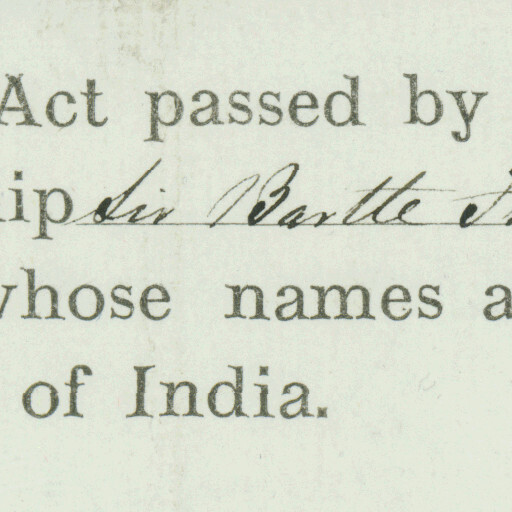 Act passed by
ip Sir Bartle
whose names a
of India.